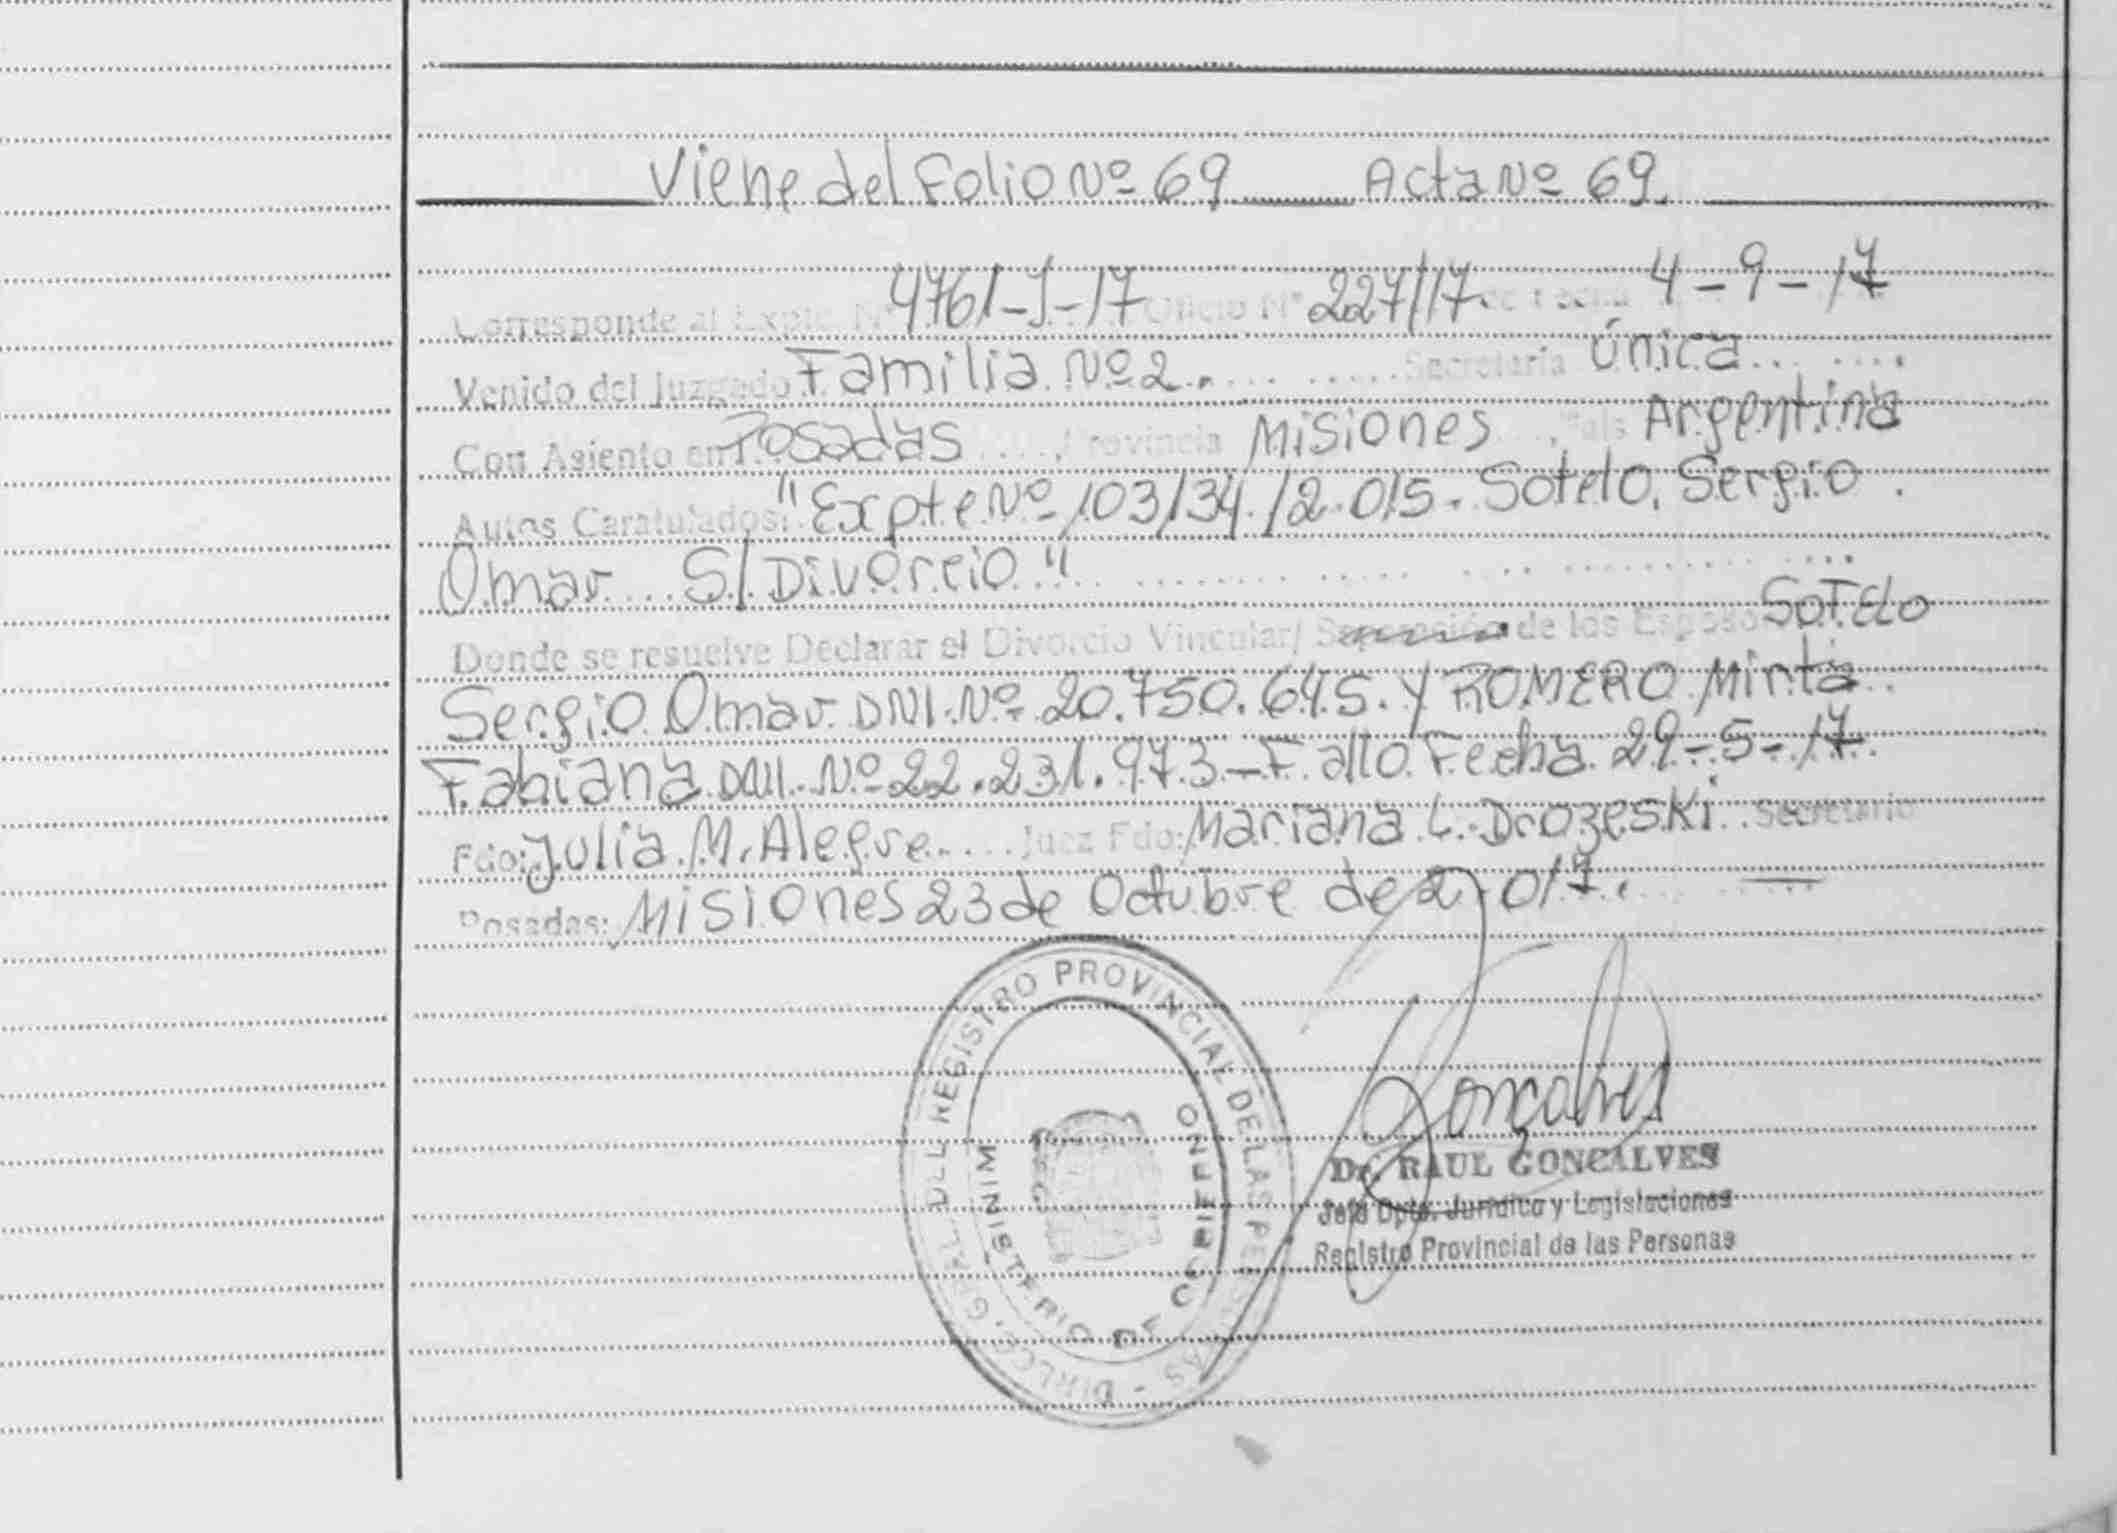 Viene del Folio Nº 69 Acta Nº 69.
Corresponde al Expte. Nº 4761-J-17 Oficio Nº 227/17. de Fecha 4-9-17
Venido del Juzgado Familia Nº 2. Secretaría Única
Con Asiento en Posadas, Provincia Misiones, País Argentina
Autos Caratulados: "Expte Nº 103134/2.015. Sotelo, Sergio
Omar S/Divorcio"
Donde se resuelve Declarar el Divorcio Vincular/ Separación de los Esposos SOTELO
Sergio Omar DNI. Nº 20.750.645. Y ROMERO Mirta
Fabiana DNI. Nº 22.231.973 - Fallo Fecha 29-5-17.
Fdo: Julia M. Alegre Juez Fdo: Mariana L. Drozeski. Secretario
Posadas: Misiones 23 de Octubre de 2.017.
DIREC. GRAL. DEL REGISTRO PROVINCIAL DE LAS PERSONAS -
MINISTERIO DE GOBIERNO
Goncalves
Dr. RAUL GONCALVES
Jefe Dpto. Jurídico y Legislaciones
Registro Provincial de las Personas